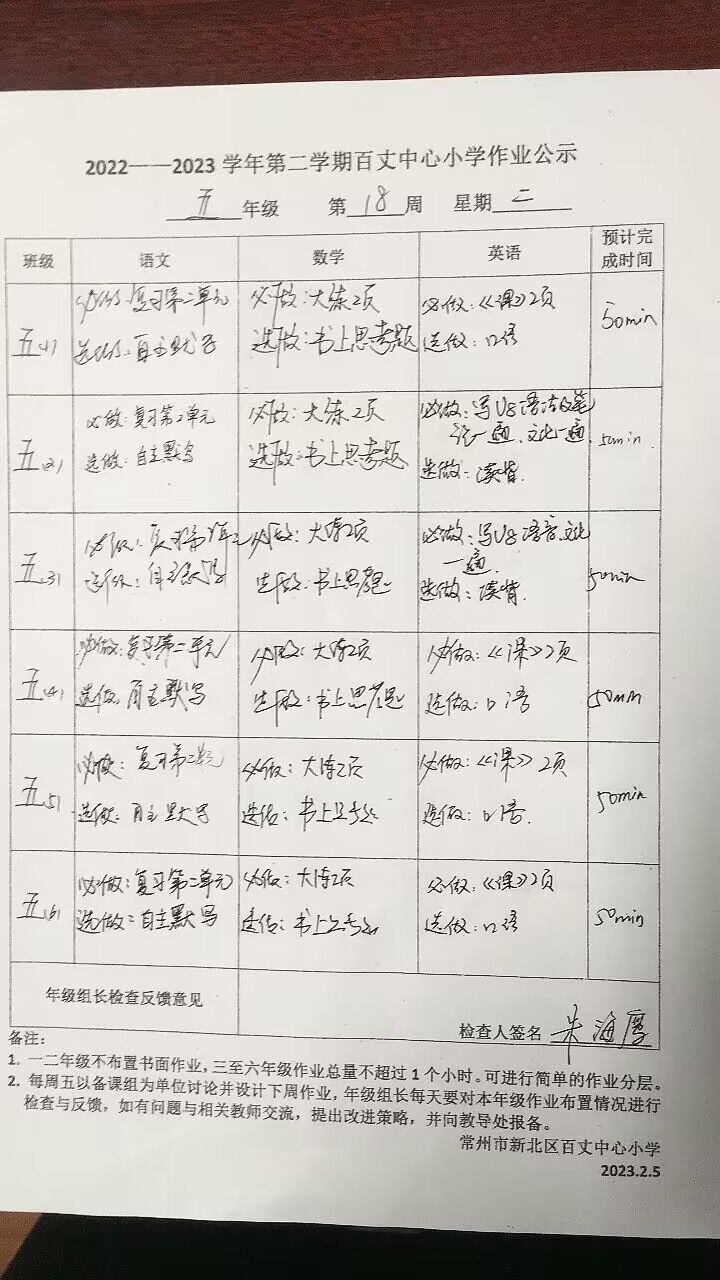 2022——2023 学年第二学期百丈中心小学作业公示
五 年级 第 18 周 星期 二
班级 语文 数学 英语 预计完成时间
五(1) 必做:复习第二单元 必做:大练2页 必做:《课》2页 50min
选做:自主默写 选做:书上思考题 选做:口语
五(2) 必做:复习第2单元 必做:大练2页 必做:写U8语法及笔 50min
选做:自主默写 选做:书上思考题 记一遍、文化一遍
选做:读背
五(3) 必做:复习第 单元 必做:大练2页 必做:写U8语音、文化 50min
选做:自主默写 选做:书上思考题 一遍
选做:读背
五(4) 必做:复习第二单元 必做:大练2页 必做:《课》2页 50min
选做:自主默写 选做:书上思考题 选做:口语
五(5) 必做:复习第二单元 必做:大练2页 必做:《课》2页 50min
选做:自主默写 选做:书上 选做:口语
五(6) 必做:复习第二单元 必做:大练2页 必做:《课》2页 50min
选做:自主默写 选做:书上 选做:口语
年级组长检查反馈意见
检查人签名 朱海
备注:
1. 一二年级不布置书面作业,三至六年级作业总量不超过 1 个小时。可进行简单的作业分层。
2. 每周五以备课组为单位讨论并设计下周作业,年级组长每天要对本年级作业布置情况进行
检查与反馈,如有问题与相关教师交流,提出改进策略,并向教导处报备。
常州市新北区百丈中心小学
2023.2.5